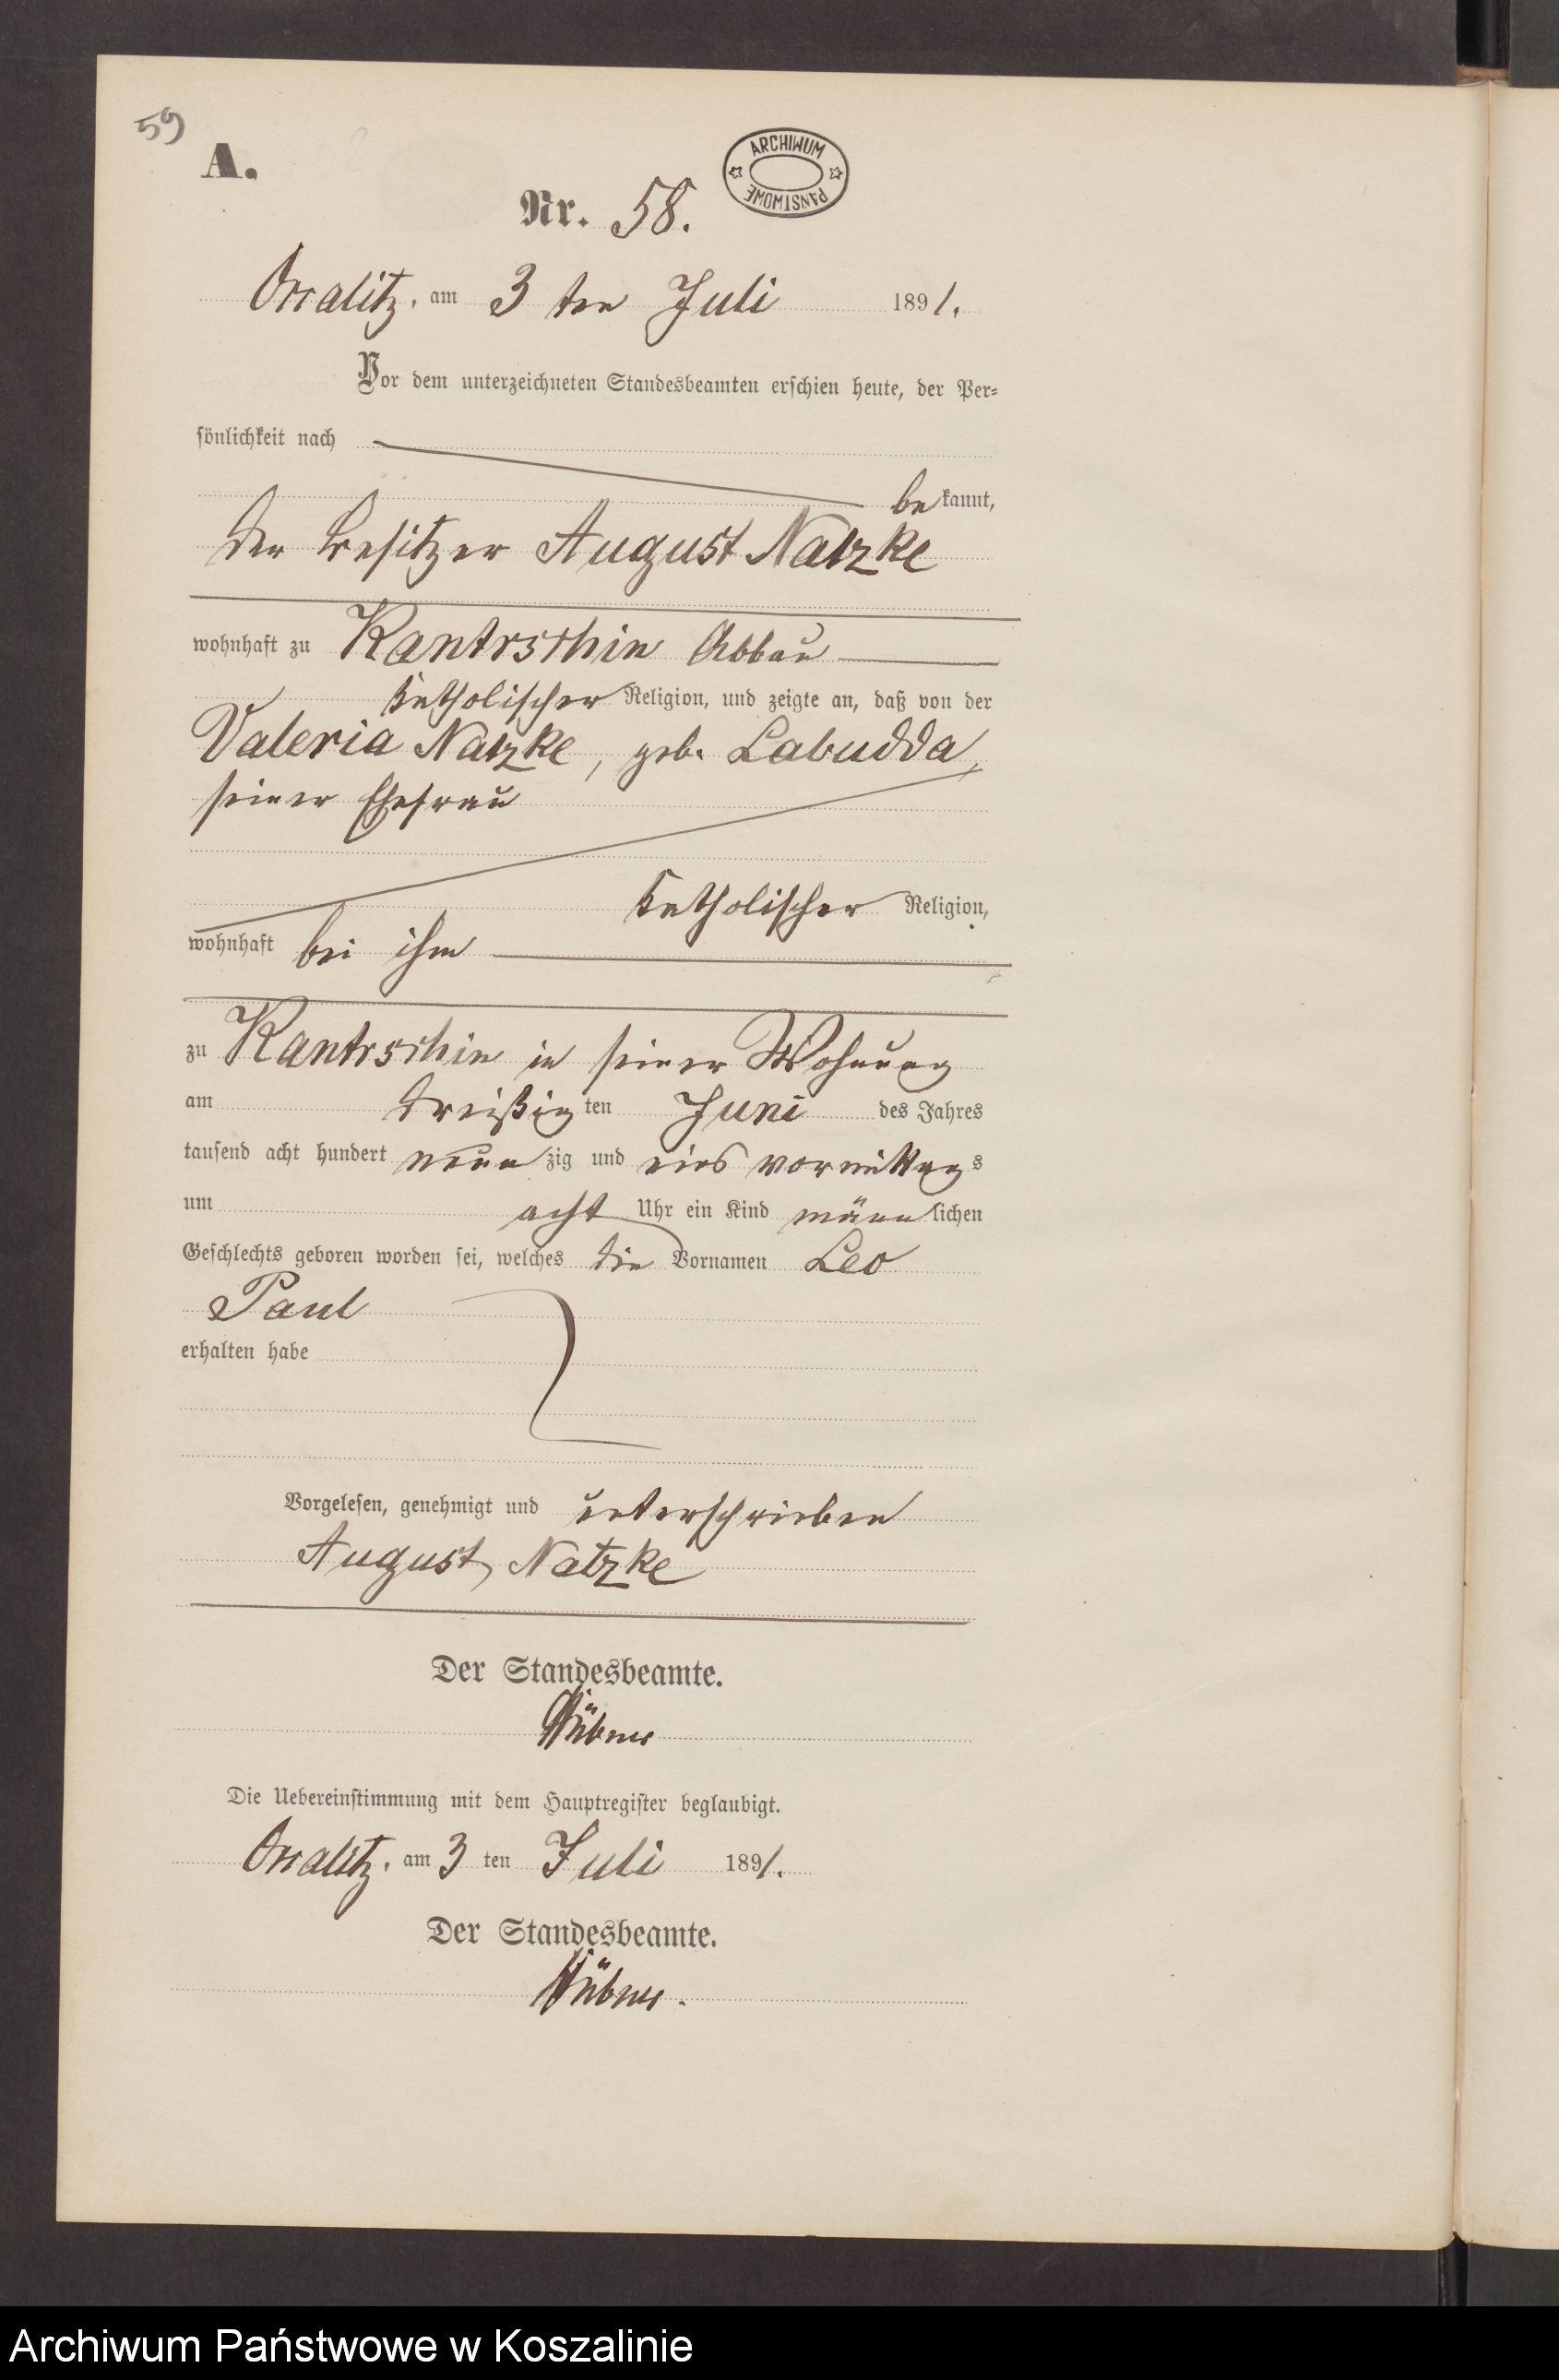 59
A.
ARCHIWUM PAŃSTWOWE
Nr. 58.
Ossalitz, am 3 ten Juli 1891.
Vor dem unterzeichneten Standesbeamten erschien heute, der Per-
sönlichkeit nach
bekannt,
der Besitzer August Natzke
wohnhaft zu Kantrschin Abbau
katholischer Religion, und zeigte an, daß von der
Valeria Natzke, geb. Labudda,
seiner Ehefrau
katholischer Religion,
wohnhaft bei ihm
zu Kantrschin in seiner Wohnung
am dreißigten Juni des Jahres
tausend acht hundert neunzig und eins vormittags
um acht Uhr ein Kind männlichen
Geschlechts geboren worden sei, welches die Vornamen Leo
Paul
erhalten habe
Vorgelesen, genehmigt und unterschrieben
August Natzke
Der Standesbeamte.
Hübner
Die Uebereinstimmung mit dem Hauptregister beglaubigt.
Ossalitz, am 3 ten Juli 1891.
Der Standesbeamte.
Hübner.
Archiwum Państwowe w Koszalinie